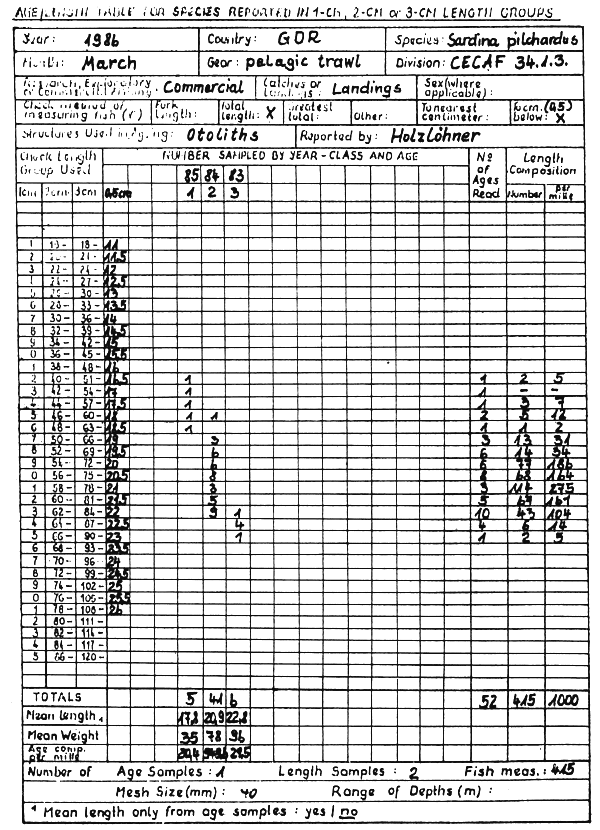 AGE/LENGTH TABLE FOR SPECIES REPORTED IN 1-CM, 2-CM or 3-CM LENGTH GROUPS
Year: 1986 Country: GDR Species: Sardina pilchardus
Month: March Gear: pelagic trawl Division: CECAF 34.1.3.
Research, Exploratory or Commercial Fishing: Commercial Catches or Landings: Landings Sex (where applicable):
Check method of measuring fish (√) Fork length: Total length: X Greatest total: Other: To nearest centimeter: To cm. (0,5) below: X
Structures Used in Ageing: Otoliths Reported by: Holzlöhner
Check Length Group Used NUMBER SAMPLED BY YEAR-CLASS AND AGE No of Ages Read Length Composition
85 84 83
1cm 2cm 3cm 0,5cm 1 2 3 Number per mille
1 18- 18- 11
2 20- 21- 11,5
3 22- 24- 12
27- 12,5
30- 13
6 28- 33- 13,5
7 30- 36- 14
8 32- 39- 14,5
9 34- 42- 15
0 36- 45- 15,5
1 38- 48- 16
2 40- 51- 16,5 1 1 2 5
3 42- 54- 17 1 1 - -
4 44- 57- 17,5 1 1 3 7
5 46- 60- 18 1 1 2 5 12
6 48- 63- 18,5 1 1 1 2
7 50- 66- 19 3 3 13 31
8 52- 69- 19,5 6 6 14 34
9 54- 72- 20 6 6 77 186
0 56- 75- 20,5 8 8 68 164
1 58- 78- 21 3 3 114 275
2 60- 81- 21,5 5 5 67 161
3 62- 84- 22 9 1 10 43 104
4 64- 87- 22,5 4 4 6 14
5 66- 90- 23 1 1 2 5
6 68- 93- 23,5
7 70- 96- 24
8 72- 99- 24,5
9 74- 102- 25
0 76- 105- 25,5
1 78- 108- 26
2 80- 111-
3 82- 114-
4 84- 117-
5 86- 120-
TOTALS 5 41 6 52 415 1000
Mean length ₁ 17,8 20,9 22,8
Mean Weight 35 78 96
Age comp. per mille
Number of Age Samples: 1 Length Samples: 2 Fish meas.: 415
Mesh Size (mm): 40 Range of Depths (m):
¹ Mean length only from age samples: yes / no